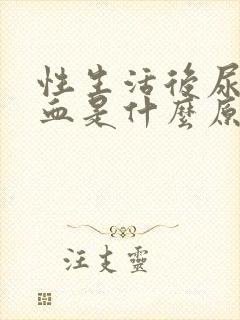 性生活後尿
血是什麼原
汪支靈